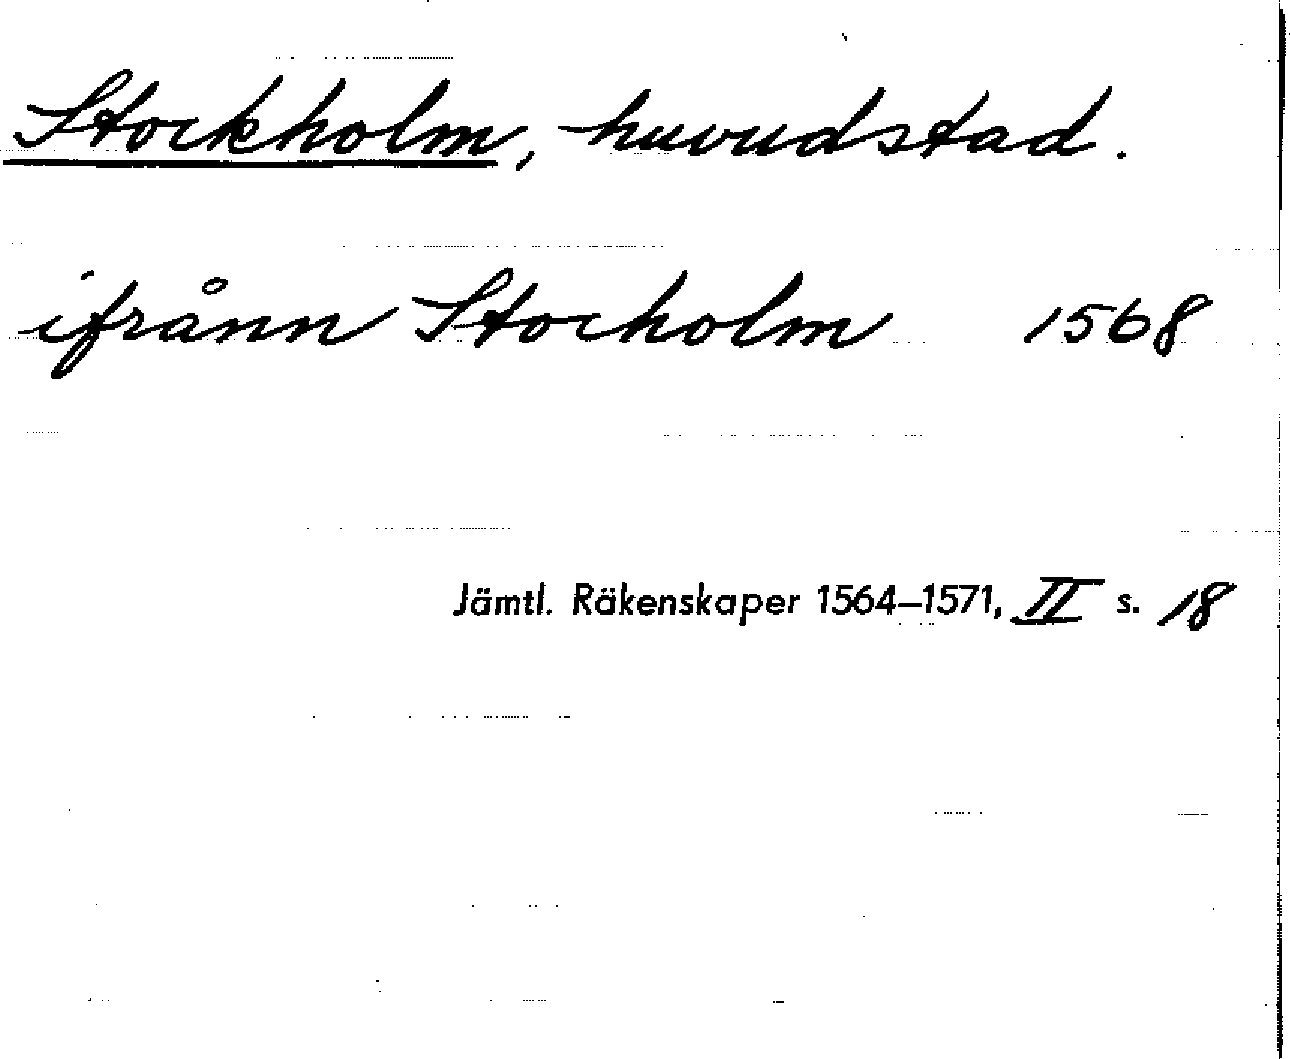 Stockholm, huvudstad.
ifrånn Stocholm 1568
Jämtl. Räkenskaper 1564–1571, II s. 18